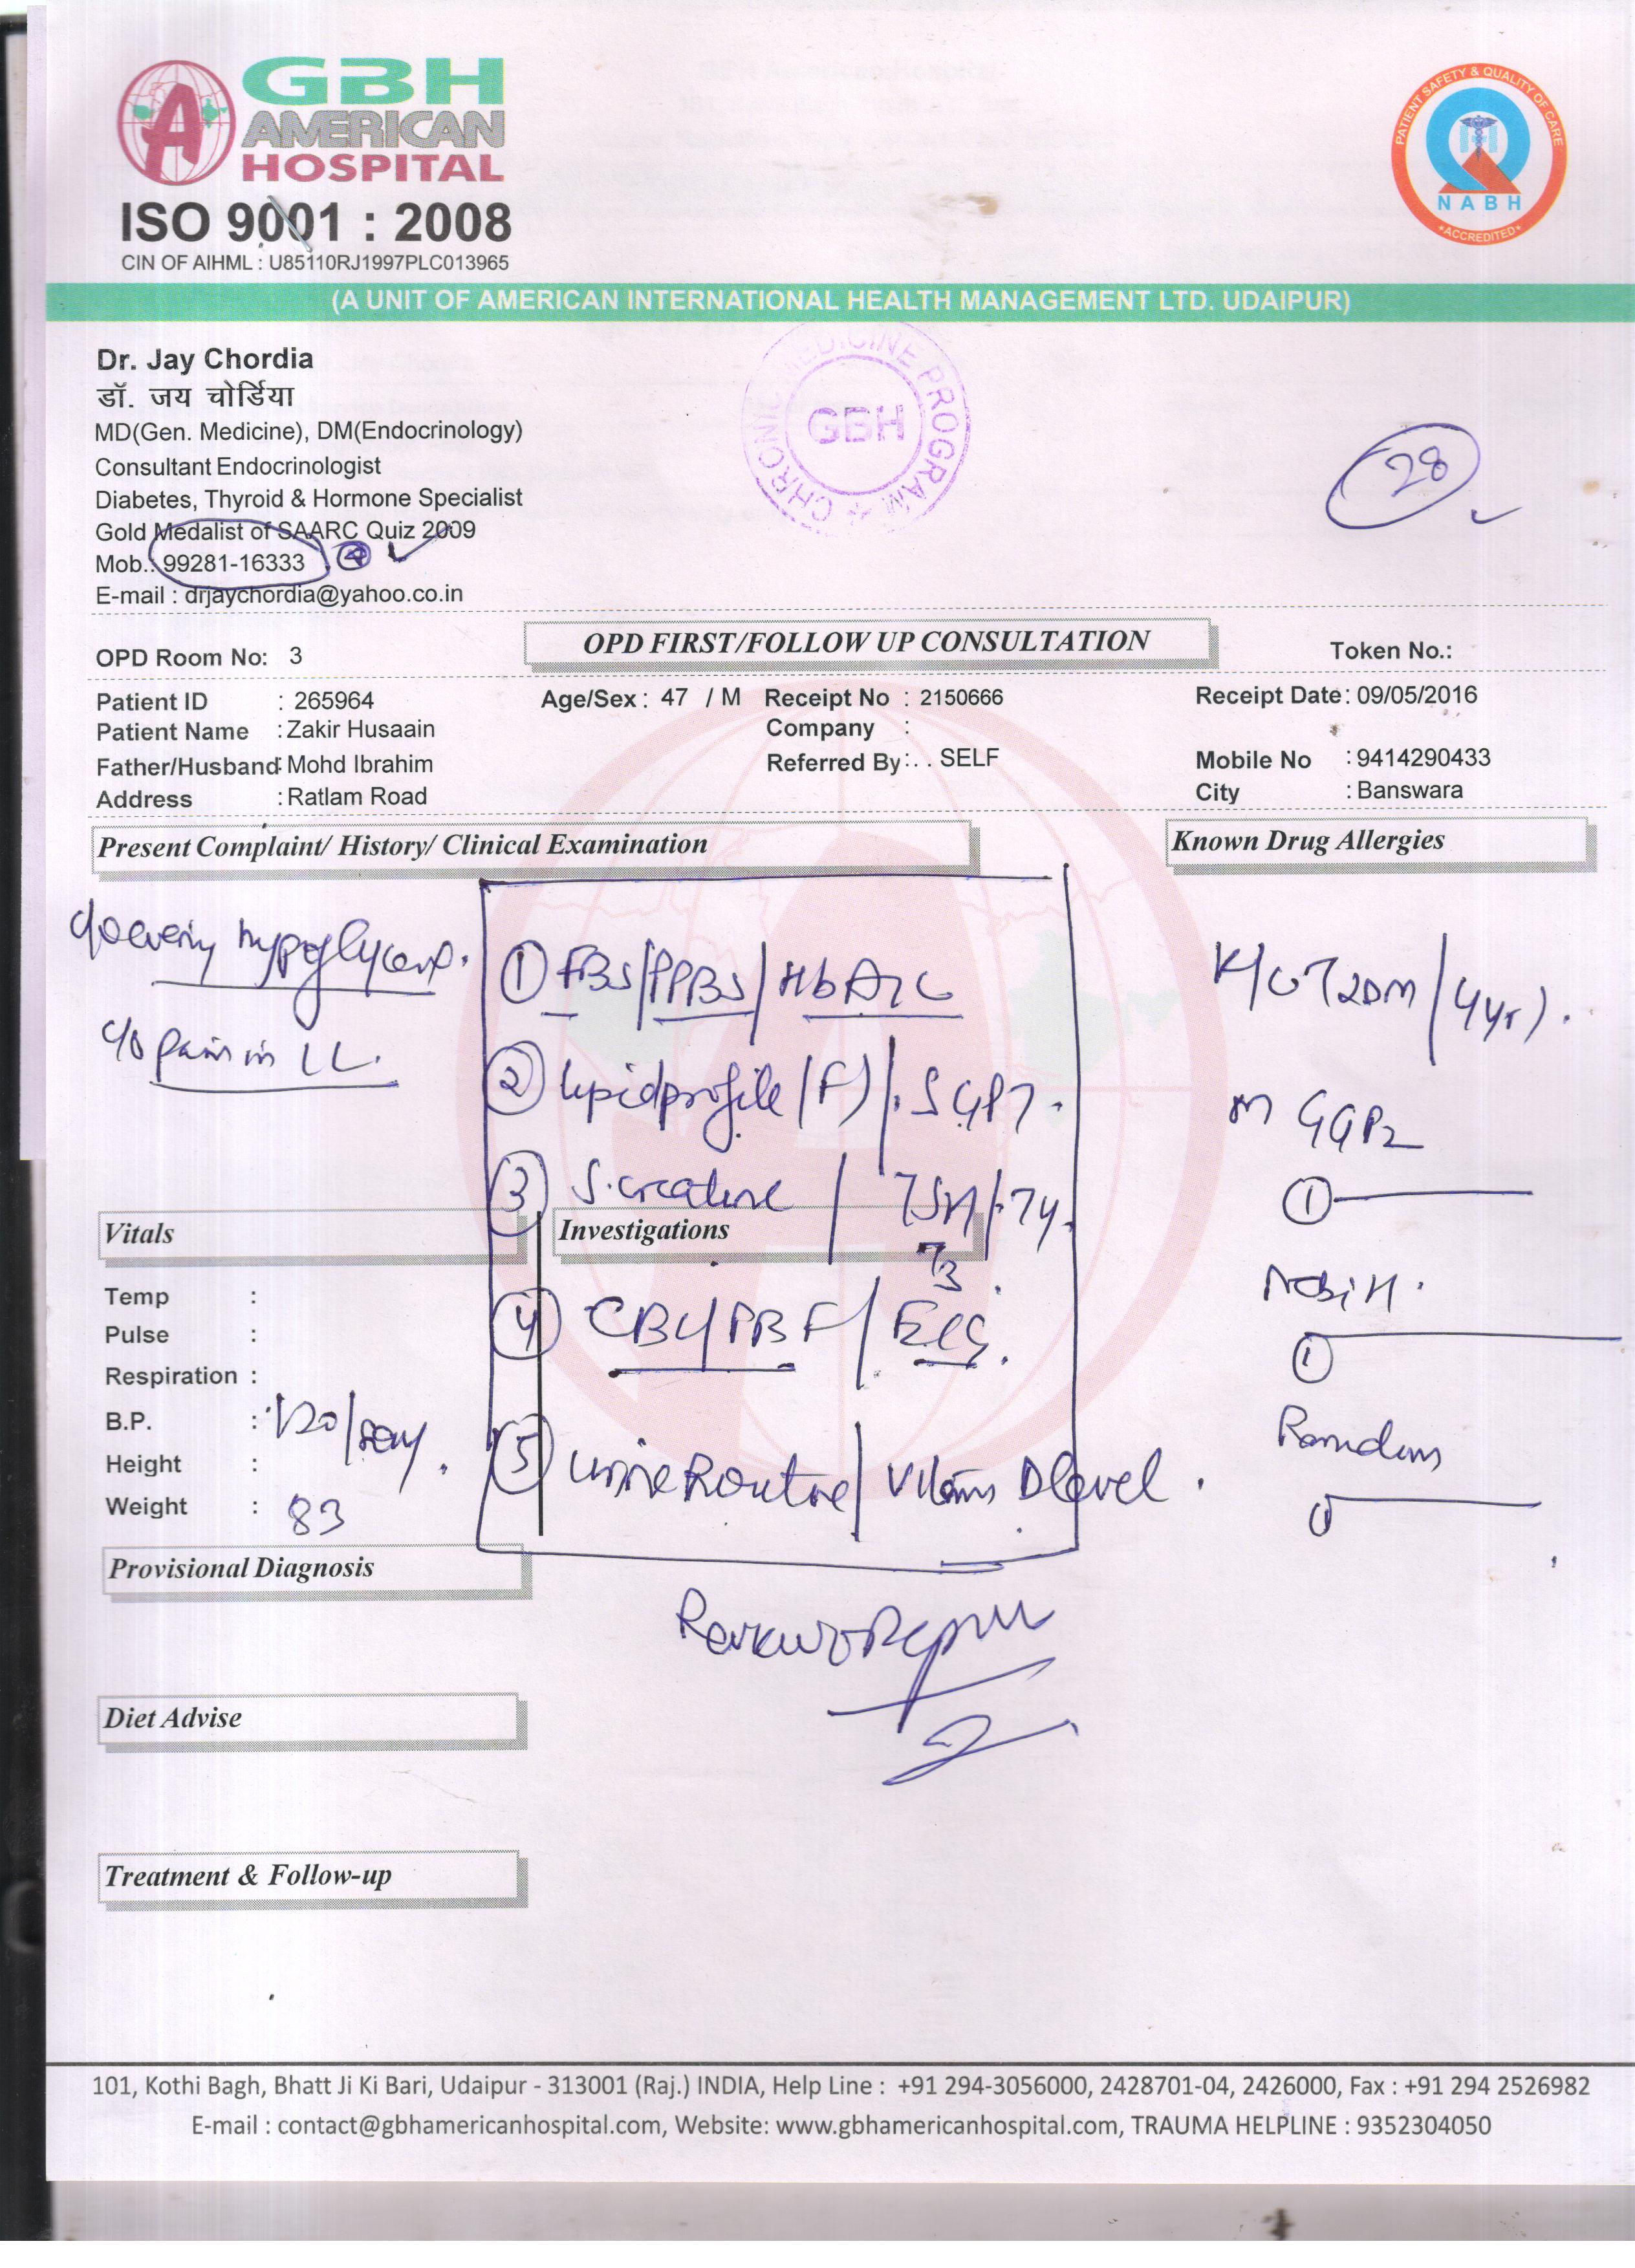 GBH
AMERICAN
HOSPITAL
ISO 9001 : 2008
CIN OF AIHML : U85110RJ1997PLC013965
PATIENT SAFETY & QUALITY OF CARE
NABH
ACCREDITED
(A UNIT OF AMERICAN INTERNATIONAL HEALTH MANAGEMENT LTD. UDAIPUR)
Dr. Jay Chordia
डॉ. जय चोर्डिया
MD(Gen. Medicine), DM(Endocrinology)
Consultant Endocrinologist
Diabetes, Thyroid & Hormone Specialist
Gold Medalist of SAARC Quiz 2009
Mob.: 99281-16333
E-mail : drjaychordia@yahoo.co.in
CHRONIC MEDICINE PROGRAM
GBH
28
OPD Room No: 3
OPD FIRST/FOLLOW UP CONSULTATION
Token No.:
Patient ID : 265964 Age/Sex : 47 / M Receipt No : 2150666 Receipt Date: 09/05/2016
Patient Name : Zakir Husaain Company :
Father/Husband: Mohd Ibrahim Referred By : . . SELF Mobile No : 9414290433
Address : Ratlam Road City : Banswara
Present Complaint/ History/ Clinical Examination
Known Drug Allergies
c/o pain in LL.
① FBS/PPBS/HbA1C
② lipid profile (F)/. SGPT.
③ S. creatine / TSH/.T4.
T3
④ CBC/PBF/ECG.
⑤ urine Routine/ Vitamin D level.
K/C T2DM/4yr).
m GGP2
①
①
①
Vitals
Investigations
Temp :
Pulse :
Respiration :
B.P. : 120/
Height :
Weight : 83
Provisional Diagnosis
Diet Advise
Treatment & Follow-up
101, Kothi Bagh, Bhatt Ji Ki Bari, Udaipur - 313001 (Raj.) INDIA, Help Line : +91 294-3056000, 2428701-04, 2426000, Fax : +91 294 2526982
E-mail : contact@gbhamericanhospital.com, Website: www.gbhamericanhospital.com, TRAUMA HELPLINE : 9352304050